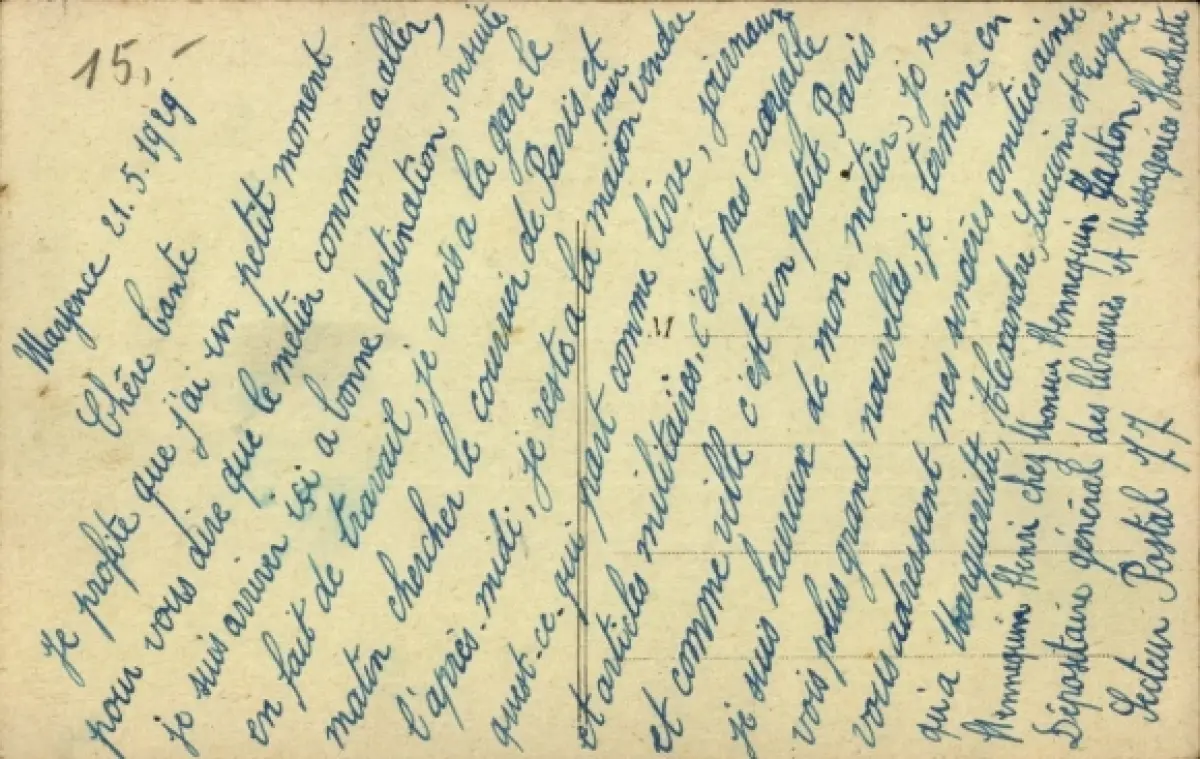 15,-
Mayence 21.5.1929
Chère tante
Je profite que j'ai un petit moment
pour vous dire que le métier commence a aller,
je suis arriver ici a bonne destination, ensuite
en fait de travail, je vais a la gare le
matin chercher le courrier de Paris et
l'après-midi, je reste a la maison pour vendre
quest-ce-qui part comme livre, journaux
et articles militaires, c'est pas croyable
et comme ville c'est un petit Paris
je suis heureux de mon métier, je ne
vois plus grand nouvelles, je termine en
vous adressant mes sincères amitiés ainse
qu'a Marguerite, Alexandre, Lucienne et Eugène
Hennequin Henri chez Monsieur Hennequin Gaston
Dépositaire général des librairies et Messageries Hachette
Secteur Postal 77
M